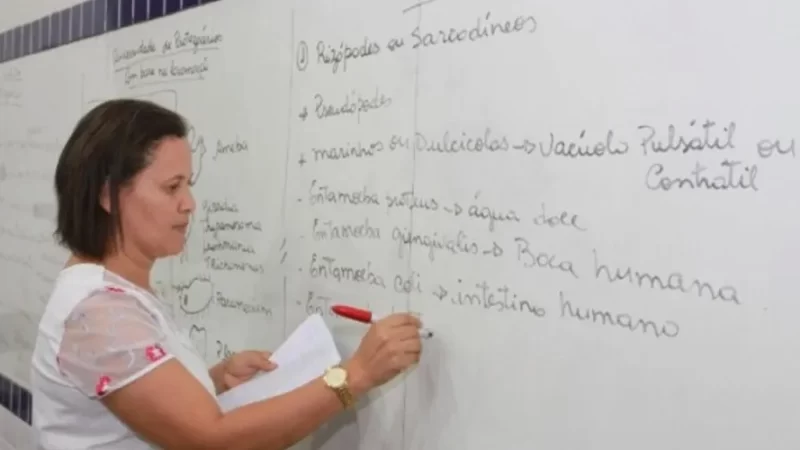 Diversidade de Protozoários
Com base na locomoção
Ameba
Giardia
Trypanosoma
Leishmania
Trichomonas
Paramecium
① Rizópodes ou Sarcodíneos
+ Pseudópodes
+ marinhos ou Dulcícolas → Vacúolo Pulsátil ou
Contrátil
- Entamoeba → água doce
- Entamoeba gengivalis → Boca humana
- Entamoeba coli → intestino humano
- Enta